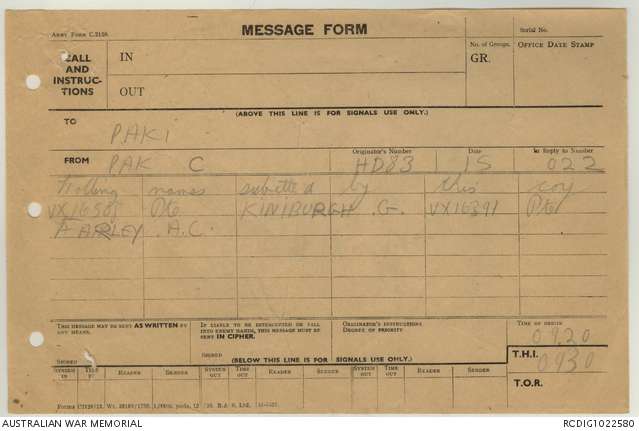 ARMY FORM C.2128.
MESSAGE FORM
Serial No.
CALL AND INSTRUCTIONS
IN
OUT
No. of Groups.
GR.
OFFICE DATE STAMP
(ABOVE THIS LINE IS FOR SIGNALS USE ONLY.)
TO
PAK1
FROM
PAK C
Originator's Number
HD83
Date
15
In Reply to Number
022
Folling names submitted by this coy
Pte KINIBURGH .G. VX16391 Pte
FARLEY .A.C.
THIS MESSAGE MAY BE SENT AS WRITTEN BY ANY MEANS.
SIGNED
IF LIABLE TO BE INTERCEPTED OR FALL INTO ENEMY HANDS, THIS MESSAGE MUST BE SENT IN CIPHER.
SIGNED
ORIGINATOR'S INSTRUCTIONS
DEGREE OF PRIORITY
TIME OF ORIGIN
0920
(BELOW THIS LINE IS FOR SIGNALS USE ONLY.)
T.H.I. 0930
T.O.R.
SYSTEM IN
TIME IN
READER
SENDER
SYSTEM OUT
TIME OUT
READER
SENDER
SYSTEM OUT
TIME OUT
READER
SENDER
AUSTRALIAN WAR MEMORIAL
RCDIG1022580